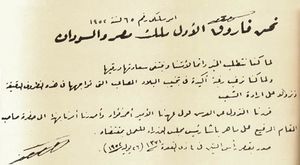 أمر ملكي رقم ٦٥ لسنة ١٩٥٢
نحن فاروق الأول ملك مصر والسودان
لما كنا نتطلب الخير دائما لأمتنا ونبتغي سعادتها ورقيها
ولما كنا نرغب رغبة أكيدة في تجنيب البلاد المصاعب التي تواجهها في هذه الظروف الدقيقة
ونزولا على إرادة الشعب
قررنا النزول عن العرش لولي عهدنا الأمير أحمد فؤاد وأصدرنا أمرنا بهذا إلى حضرة صاحب
المقام الرفيع علي ماهر باشا رئيس مجلس الوزراء للعمل بمقتضاه
صدر بقصر رأس التين في ٤ ذي القعدة ١٣٧١ (٢٦ يوليو ١٩٥٢)